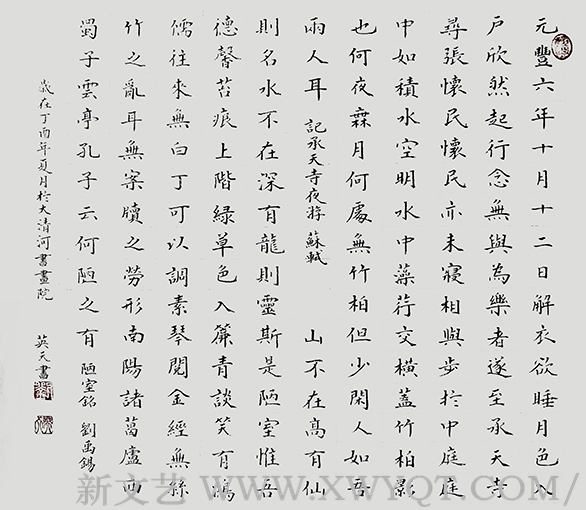 元豐六年十月十二日解衣欲睡月色入
戶欣然起行念無與為樂者遂至承天寺
尋張懷民懷民亦未寢相與步於中庭庭
中如積水空明水中藻荇交橫蓋竹柏影
也何夜無月何處無竹柏但少閑人如吾
兩人耳 記承天寺夜游 蘇軾 山不在高有仙
則名水不在深有龍則靈斯是陋室惟吾
德馨苔痕上階綠草色入簾青談笑有鴻
儒往來無白丁可以調素琴閱金經無絲
竹之亂耳無案牘之勞形南陽諸葛廬西
蜀子雲亭孔子云何陋之有 陋室銘 劉禹錫
歲在丁酉年夏月於大清河書畫院 英天書
新文艺 WWW.XWYQT.COM/